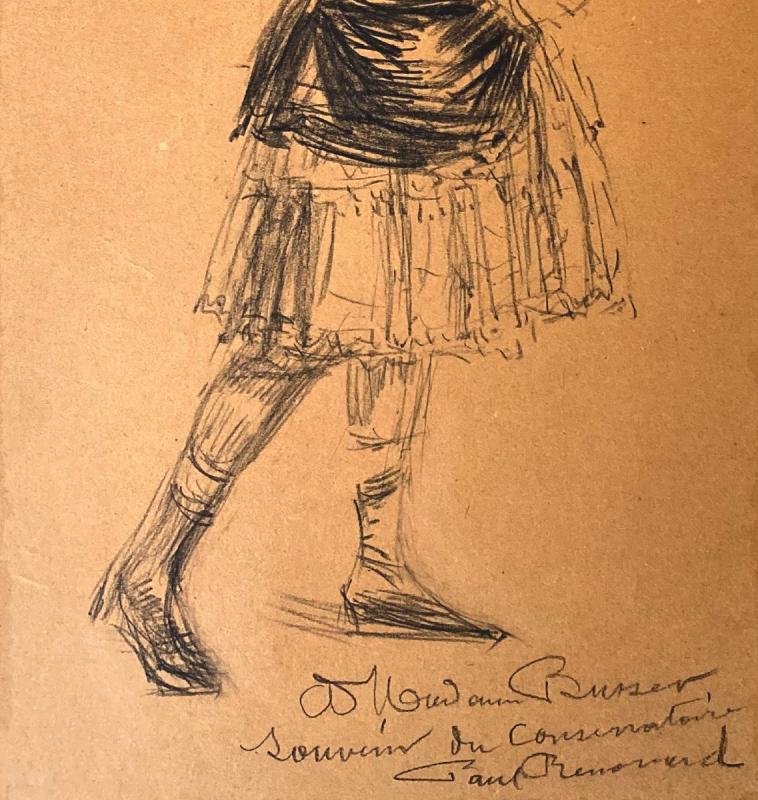 A Madame Busser
souvenir du Conservatoire
Paul Renouard